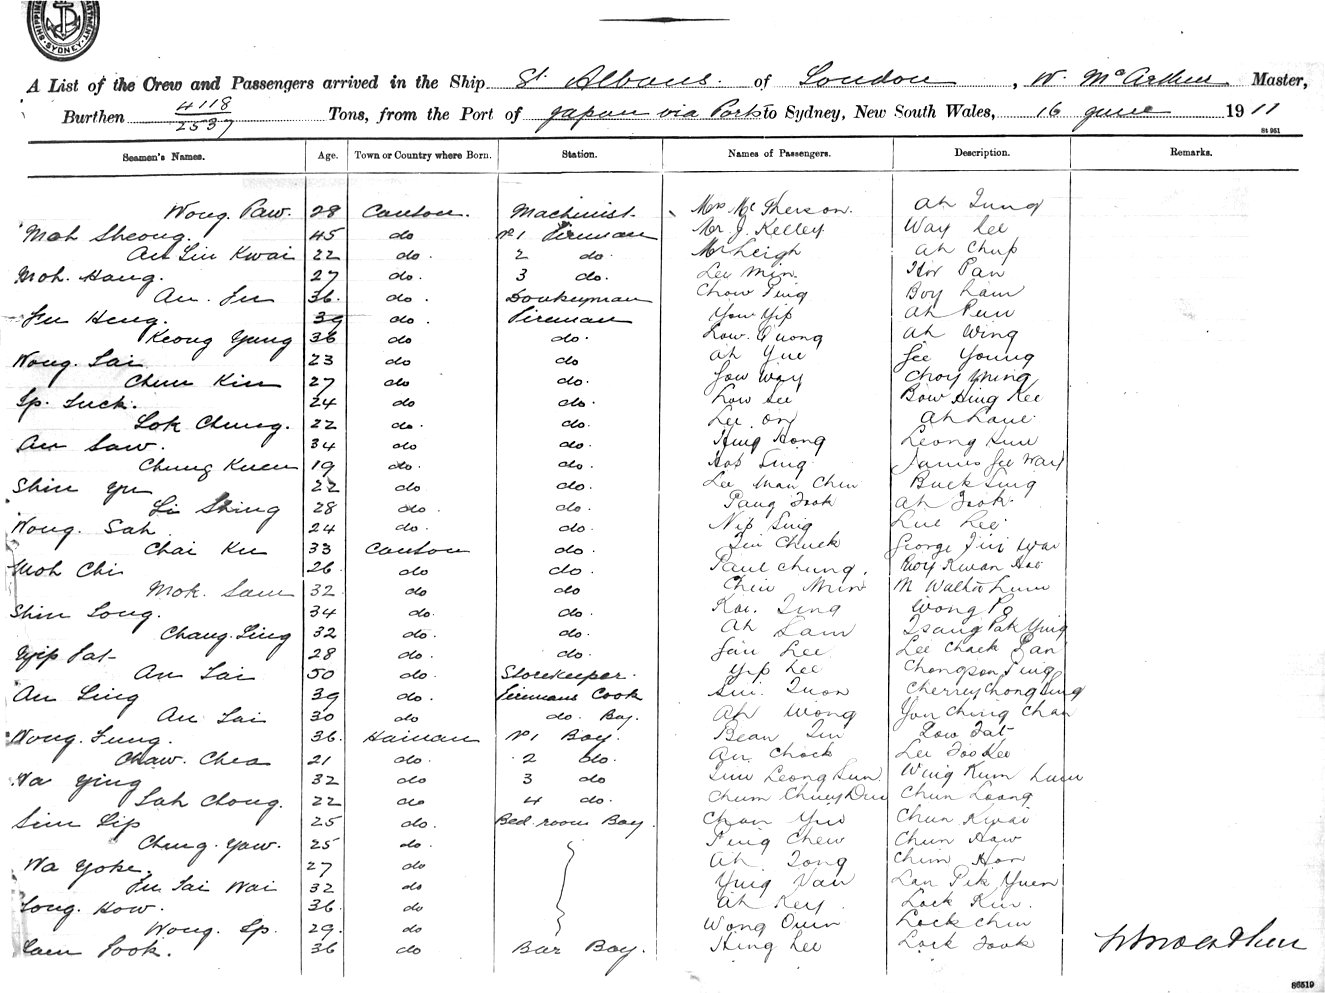 SHIPPING DEPARTMENT. SYDNEY.
A List of the Crew and Passengers arrived in the Ship St. Albans. of London, W. McArthur Master,
Burthen 4118 / 2537 Tons, from the Port of Japan via Ports to Sydney, New South Wales, 16 June 1911
St 951
Seamen's Names. Age. Town or Country where Born. Station. Names of Passengers. Description. Remarks.
Wong. Paw. 28 Canton. Machinist. Mrs McPherson. Ah Tung
Mah Sheong. 45 do No 1 Fireman Mr. J. Kelley Way Lee
Au Lin Kwai 22 do. 2 do. Mr Leigh Ah Chup
Moh. Hang. 27 do. 3 do. Lee Min. Pan
Au. Fu 36. do. Donkeyman Chow Ping Boy Lam
Fu Heng. 39 do. Fireman You Yip Ah Pun
Keong Yung 36 do do. Low. Quong Ah Wing
Wong. Sai 23 do do Ah Yue Gee Young
Chun Kin 27 do do. Gow Way Choy Ming
Ip. Luck. 24 do do. Low See Bow Hing Kee
Lok Chung. 22 do. do. Lee. on Ah Lane
Au Saw. 34 do do. Hing Hong Leong Hun
Chung Kuen 19 do. do. Hop Sing James Gee Way
Shin Yu 22 do do. Lee Man Chin Buck Sing
Li Shing 28 do. do. Pang Fook Ah Fook
Wong. Sah. 24 do. do. Nip Sing Lue Lee
Chai Ku 33 Canton do. Lin Chuck George Wai
Moh Chi 26 do do. Paul Chung. Kwan
Mok. Sam 32 do do Chin Min M Walter
Shin Song. 34 do. do. Kai. Ting Wong Po
Chang. Ling 32 do. do. Ah Lam Tsang Pak Ying
Yip Fat 28 do. do. Jan Lee Lee Chack Pan
Au Sai 50 do. Storekeeper. Yip Lee Chongson Ping
Au Ling 39 do. Firemans Cook Sui. Tuon Cherrey Chong Sing
Au Lai 30 do do. Boy. Ah Wong Yon Ching Chan
Wong. Fung. 36. Hainan No 1 Boy. Bean Tin Low Fat
Chaw. Chea 21 do. 2 do. Au Chock Lee Foo Kee
Wa Ying 32 do 3 do Leong Sun Wing Kum Lum
Sah Chong. 22 do 4 do. Chum Chuey Dun Chun Loong
Sim Lip 25 do. Bed room Boy. Chan Yin Chun Kwai
Chung. Yaw. 25 do. Ping Chew Chun Haw
Wa Yoke. 27 do Ah Tong Chun Hon
Fu Sai Wai 32 do Ying Van Lan Pek Yuen
Song. How. 36. do Ah Key. Lock Kin.
Wong. Ip. 29. do Wong Ouin Lock Chin
Lam Fook. 36 do Bar Boy. Hing Lee Lock Fook W McArthur
86519